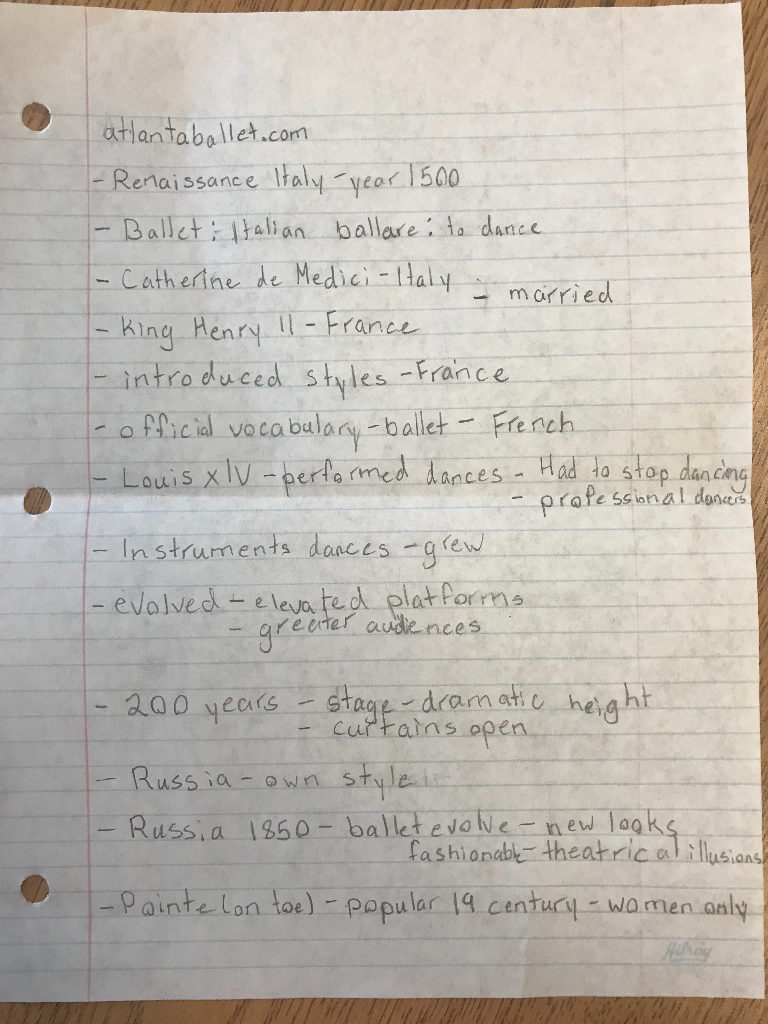 atlantaballet.com
- Renaissance Italy - year 1500
- Ballet: Italian ballare: to dance
- Catherine de Medici - Italy - married
- King Henry II - France
- introduced styles - France
- official vocabulary - ballet - French
- Louis XIV - performed dances - Had to stop dancing
- professional dancers
- Instruments dances - grew
- evolved - elevated platforms
- greater audiences
- 200 years - stage - dramatic height
- curtains open
- Russia - own style
- Russia 1850 - ballet evolve - new looks
fashionable - theatrical illusions
- Pointe (on toe) - popular 19 century - women only
Hilroy